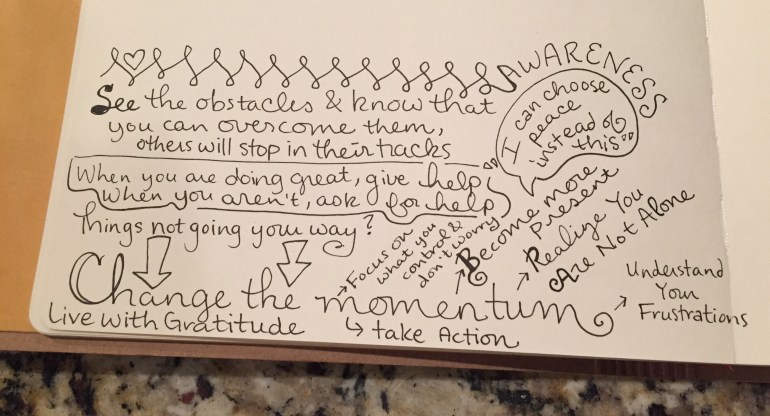 AWARENESS
See the obstacles & know that
you can overcome them,
others will stop in their tracks
I can choose
peace
instead of
this
When you are doing great, give help
When you aren't, ask for help
Things not going your way?
Change the momentum
Live with Gratitude
→ Focus on
what you
control &
don't worry
→ Become more
Present
→ Realize You
Are Not Alone
→ Understand
Your
Frustrations
↳ take Action